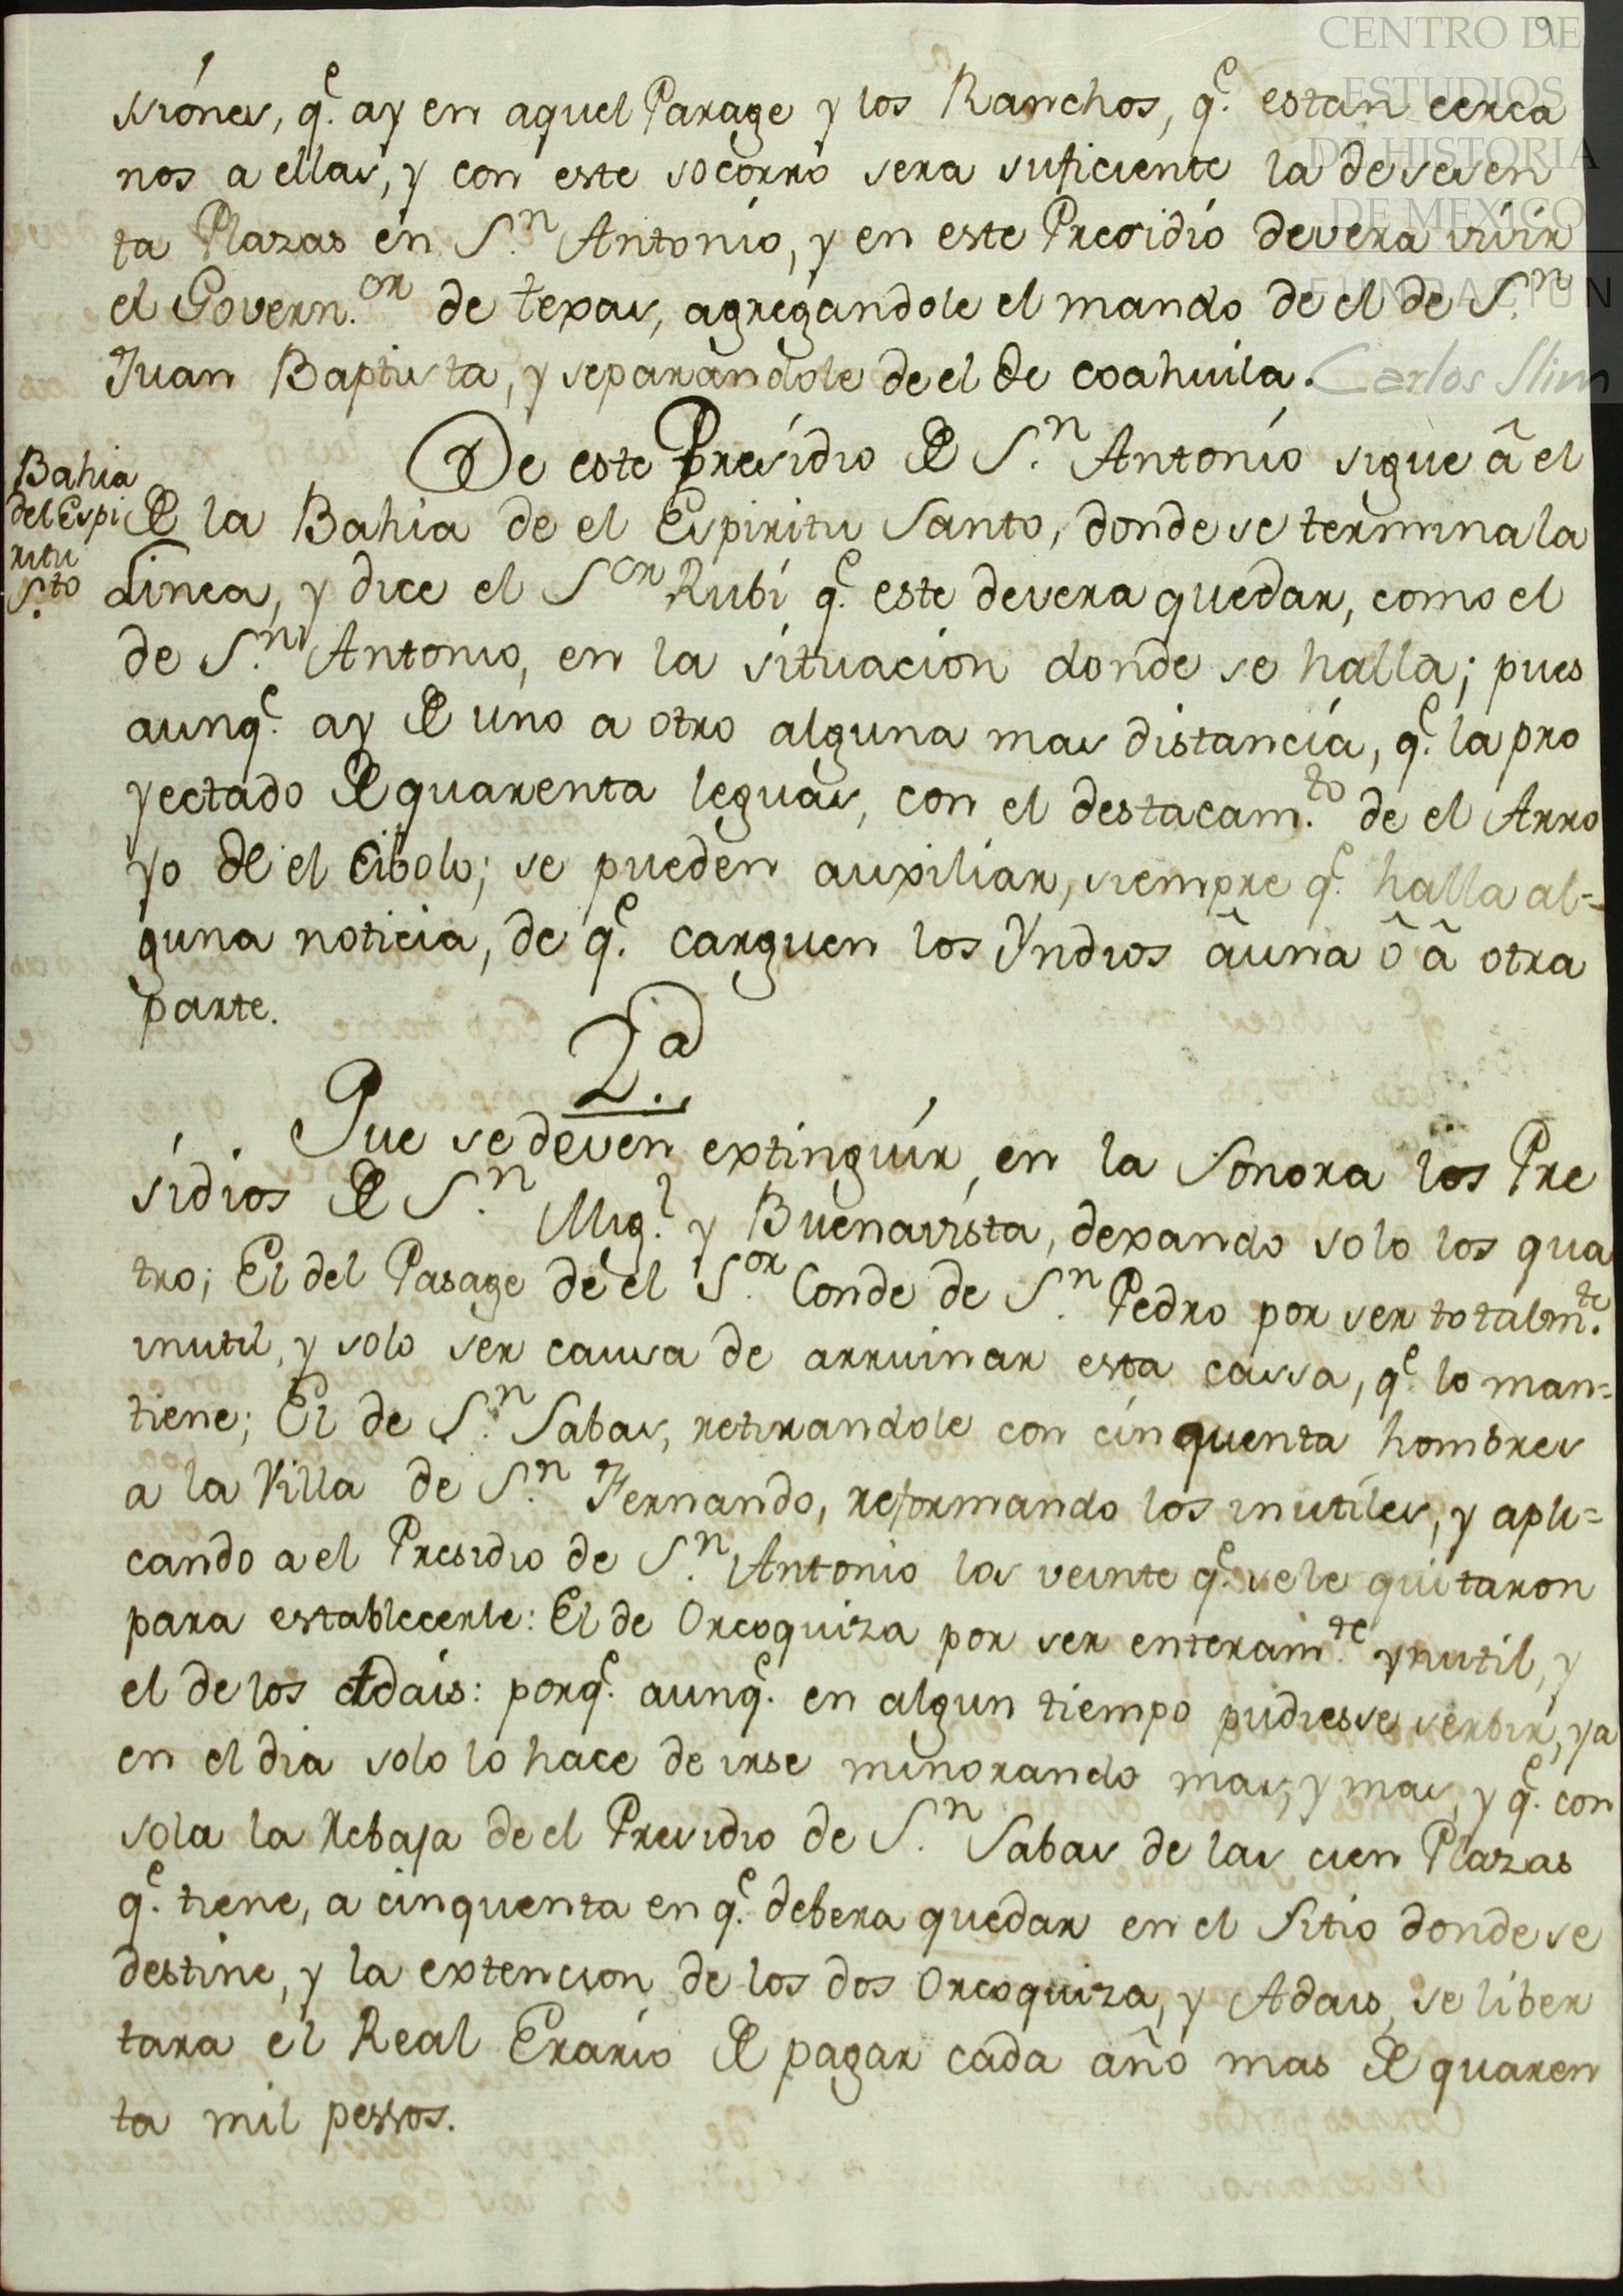 9
CENTRO DE
ESTUDIOS
DE HISTORIA
DE MEXICO
FUNDACION
Carlos Slim
ssiónes, q.e ay en aquel Parage y los Ranchos, q.e estan cerca
nos a ellas, y con este socorro sera suficiente la de sesen
ta Plazas en S.n Antonio, y en este Presidio devera vivir
el Govern.or de texas, agregandole el mando de el de S.n
Juan Baptista, y separandole de el de coahuila.
De este Presidio de S.n Antonio sigue â el
Bahia
del Espi
ritu
S.to
de la Bahia de el Espiritu Santo, donde se termina la
Linea, y dice el S.or Rubí q.e este devera quedar, como el
de S.n Antonio, en la situacion donde se halla; pues
aunq.e ay de uno a otro alguna mas distancia, q.e la pro
yectado de quarenta leguas, con el destacam.to de el Arro
yo de el Cibolo; se pueden auxiliar, siempre q.e halla al=
guna noticia, de q.e carguen los Yndios â una ô â otra
parte.
2.a
Que se deven extinguir, en la Sonora los Pre
sidios de S.n Mig.l y Buenavista, dexando solo los qua
tro; El del Pasage de el S.or Conde de S.n Pedro por ser totalm.te
inutil, y solo ser causa de arruinar esta cassa, q.e lo man=
tiene; El de S.n Sabas, retirandole con cinquenta hombres
a la Villa de S.n Fernando, reformando los inutiles, y apli=
cando a el Presidio de S.n Antonio los veinte q.e se le quitaron
para establecerle: El de Orcoquiza por ser enteram.te ynutil, y
el de los Adais: porq.e aunq.e en algun tiempo pudiesse serbir, ya
en el dia solo lo hace de irse minorando mas, y mas, y q.e con
sola la Rebaja de el Presidio de S.n Sabas de las cien Plazas
q.e tiene, a cinquenta en q.e debera quedar en el Sitio donde se
destine, y la extencion de los dos Orcoquiza, y Adais, se liber
tara el Real Erario de pagar cada año mas de quaren
ta mil pessos.